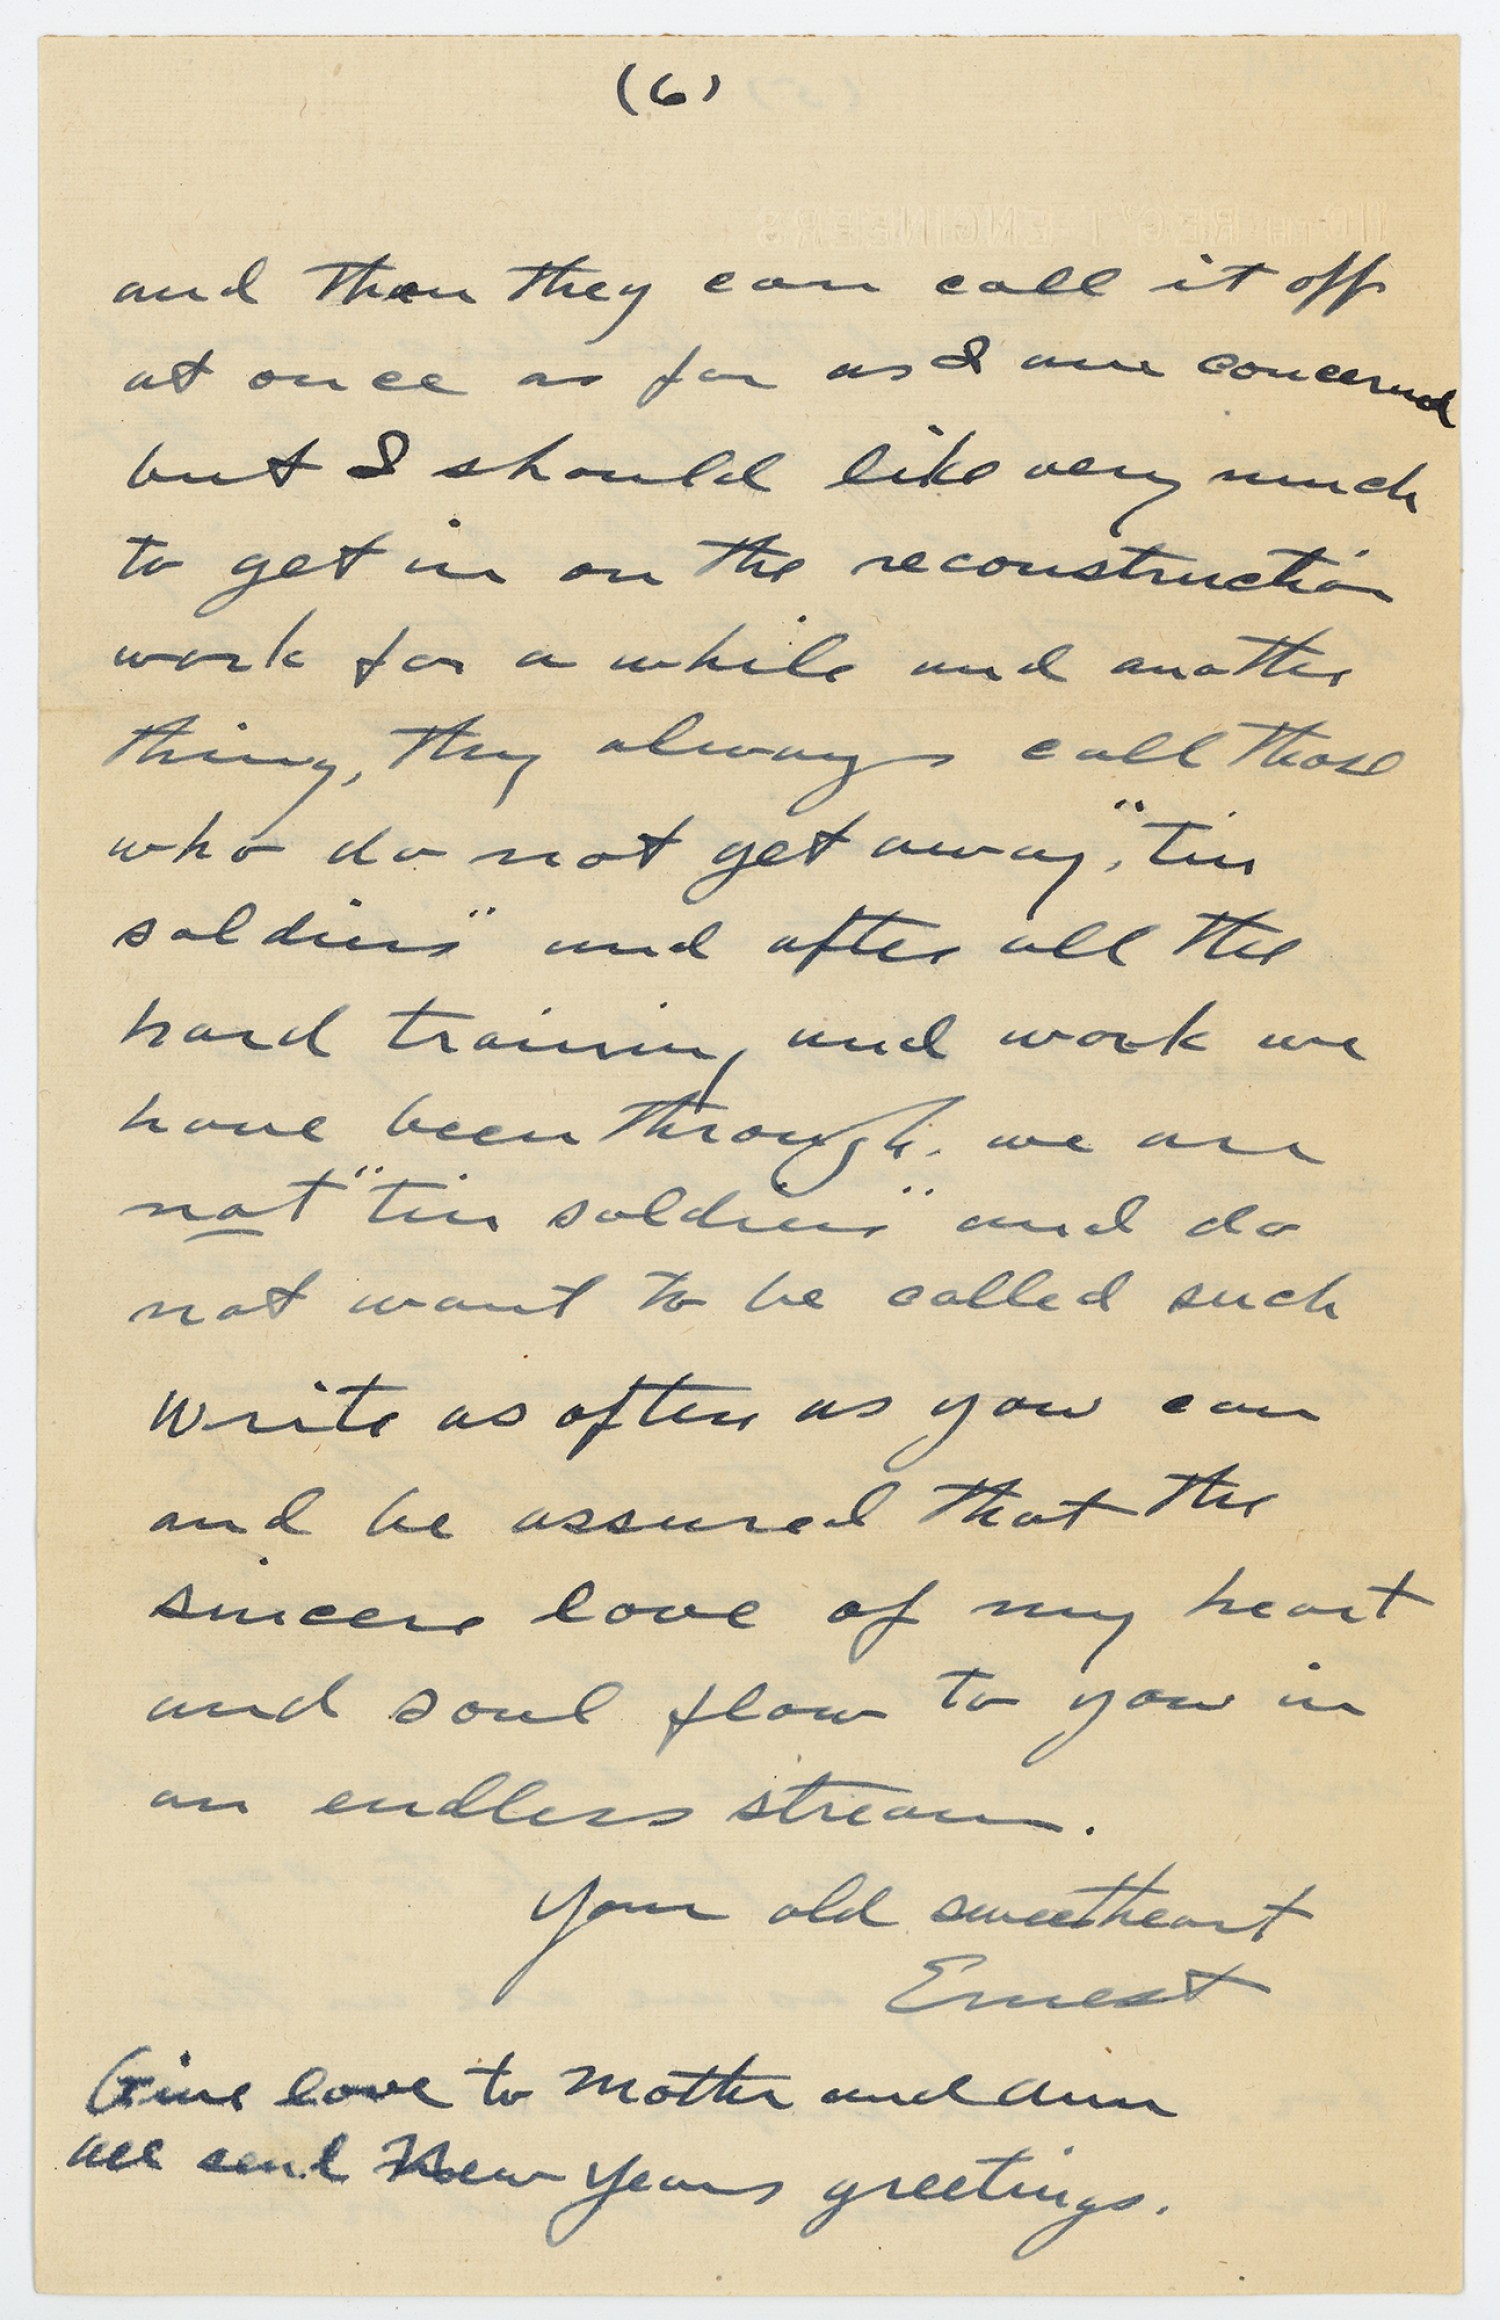 (6)
110TH REG'T ENGINEERS
and then they can call it off
at once as far as I am concerned
but I should like very much
to get in on the reconstruction
work for a while and another
thing, they always call those
who do not get away, "tin
soldiers" and after all the
hard training and work we
have been through, we are
not "tin soldiers" and do
not want to be called such
Write as often as you can
and be assured that the
sincere love of my heart
and soul flow to you in
an endless stream.
Your old sweetheart
Ernest
Give love to Mother and Ann
All send New Years greetings.